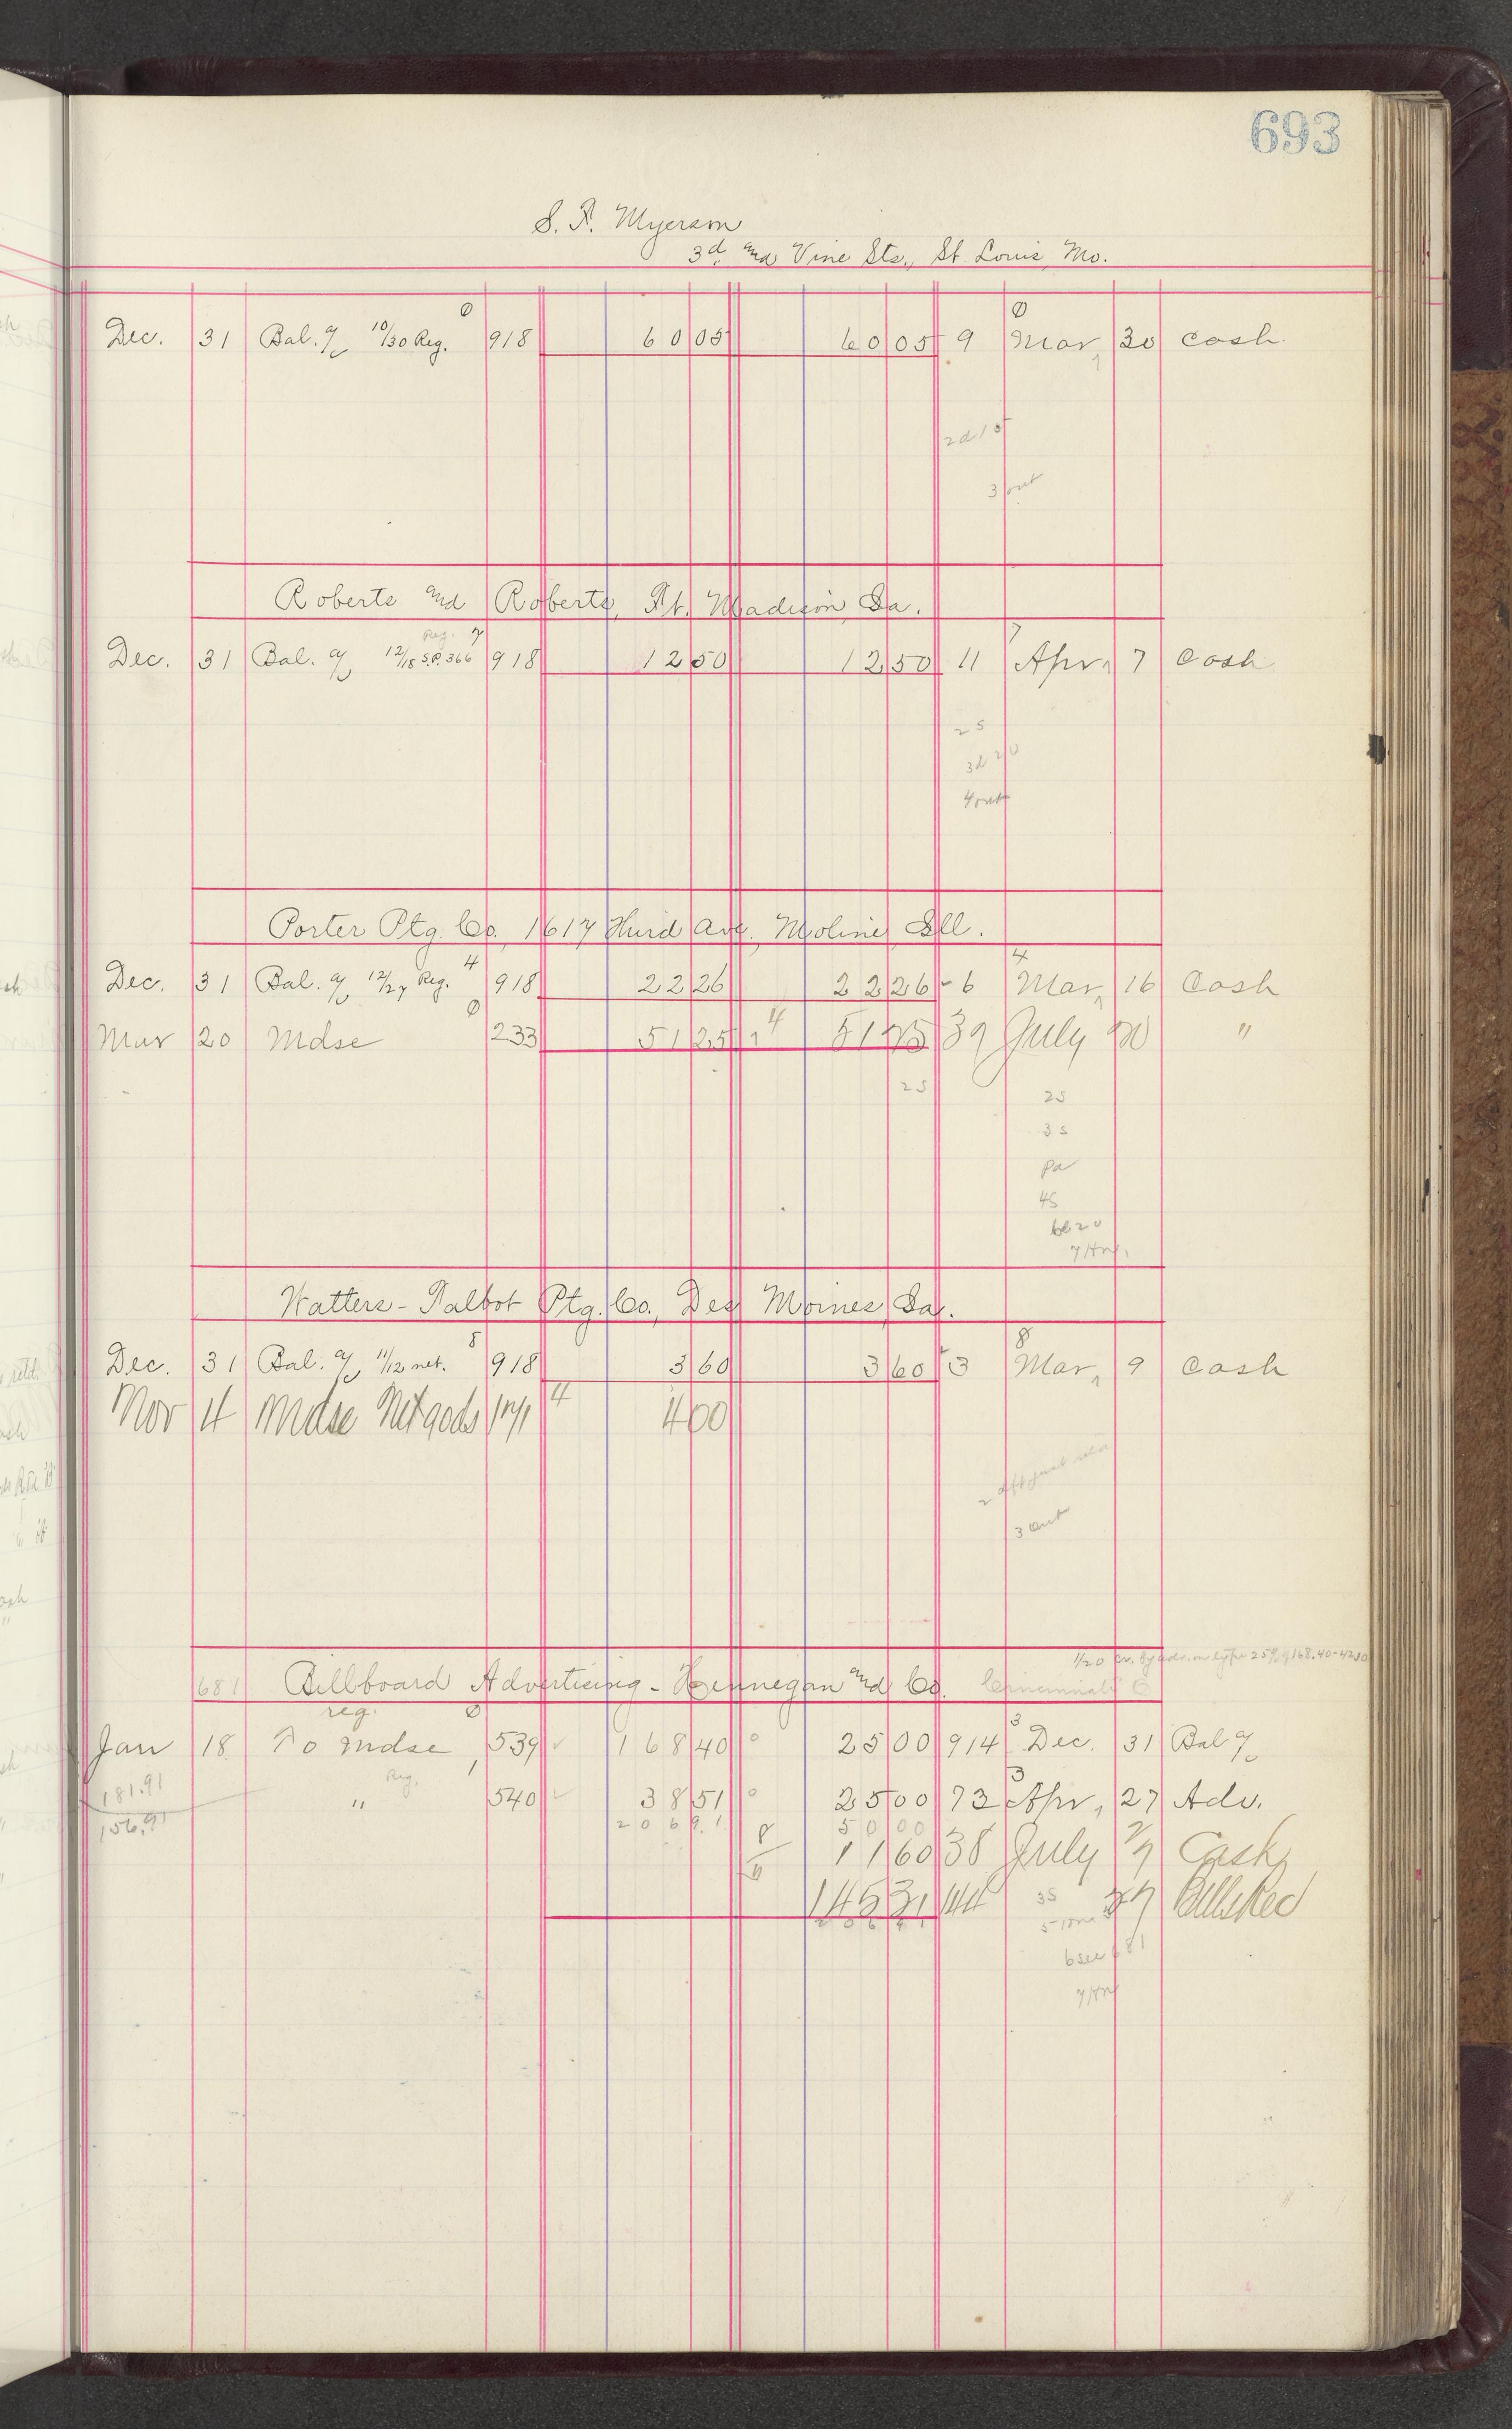 693
S. F. Myerson
3d and Vine Sts., St Louis, Mo.
0 0
Dec. 31 Bal. a/c 10/30 Reg. 918 60 05 60 05 9 Mar, 30 Cash.
2d 15
3 out
Roberts and Roberts, Ft. Madison, Ia.
Reg. 7 7
Dec. 31 Bal. a/c 12/18 S.P. 366 918 12 50 12 50 11 Apr, 7 Cash
2 5
3d 20
4 out
Porter Ptg. Co., 1617 Hurd Ave., Moline, Ill.
4 4
Dec. 31 Bal. a/c 12/27 Reg. 918 22 26 22 26 - 6 Mar, 16 Cash
0
Mar 20 Mdse 233 51 25 4 51 39 July 20 "
25
25
3 s
pd
45
20
Watters-Talbot Ptg. Co., Des Moines, Ia.
8 8
Dec. 31 Bal. a/c 11/12 net. 918 3 60 3 60 3 Mar, 9 Cash
Nov 4 Mdse Net gods 171 4 4 00
3 out
1/20 168.40-42.10
681 Billboard Advertising - Hennegan and Co. Cincinnati O
reg. 0 3
Jan 18 To Mdse 539 168 40 0 25 00 914 Dec. 31 Bal a/c
181.91 Reg. 3
" 540 38 51 0 25 00 72 Apr, 27 Adv.
156.91 206 9.1 50 00
8 11 60 38 July 27 Cash
145 31 144 35 27 Bills Rec
206 91
6 see 681